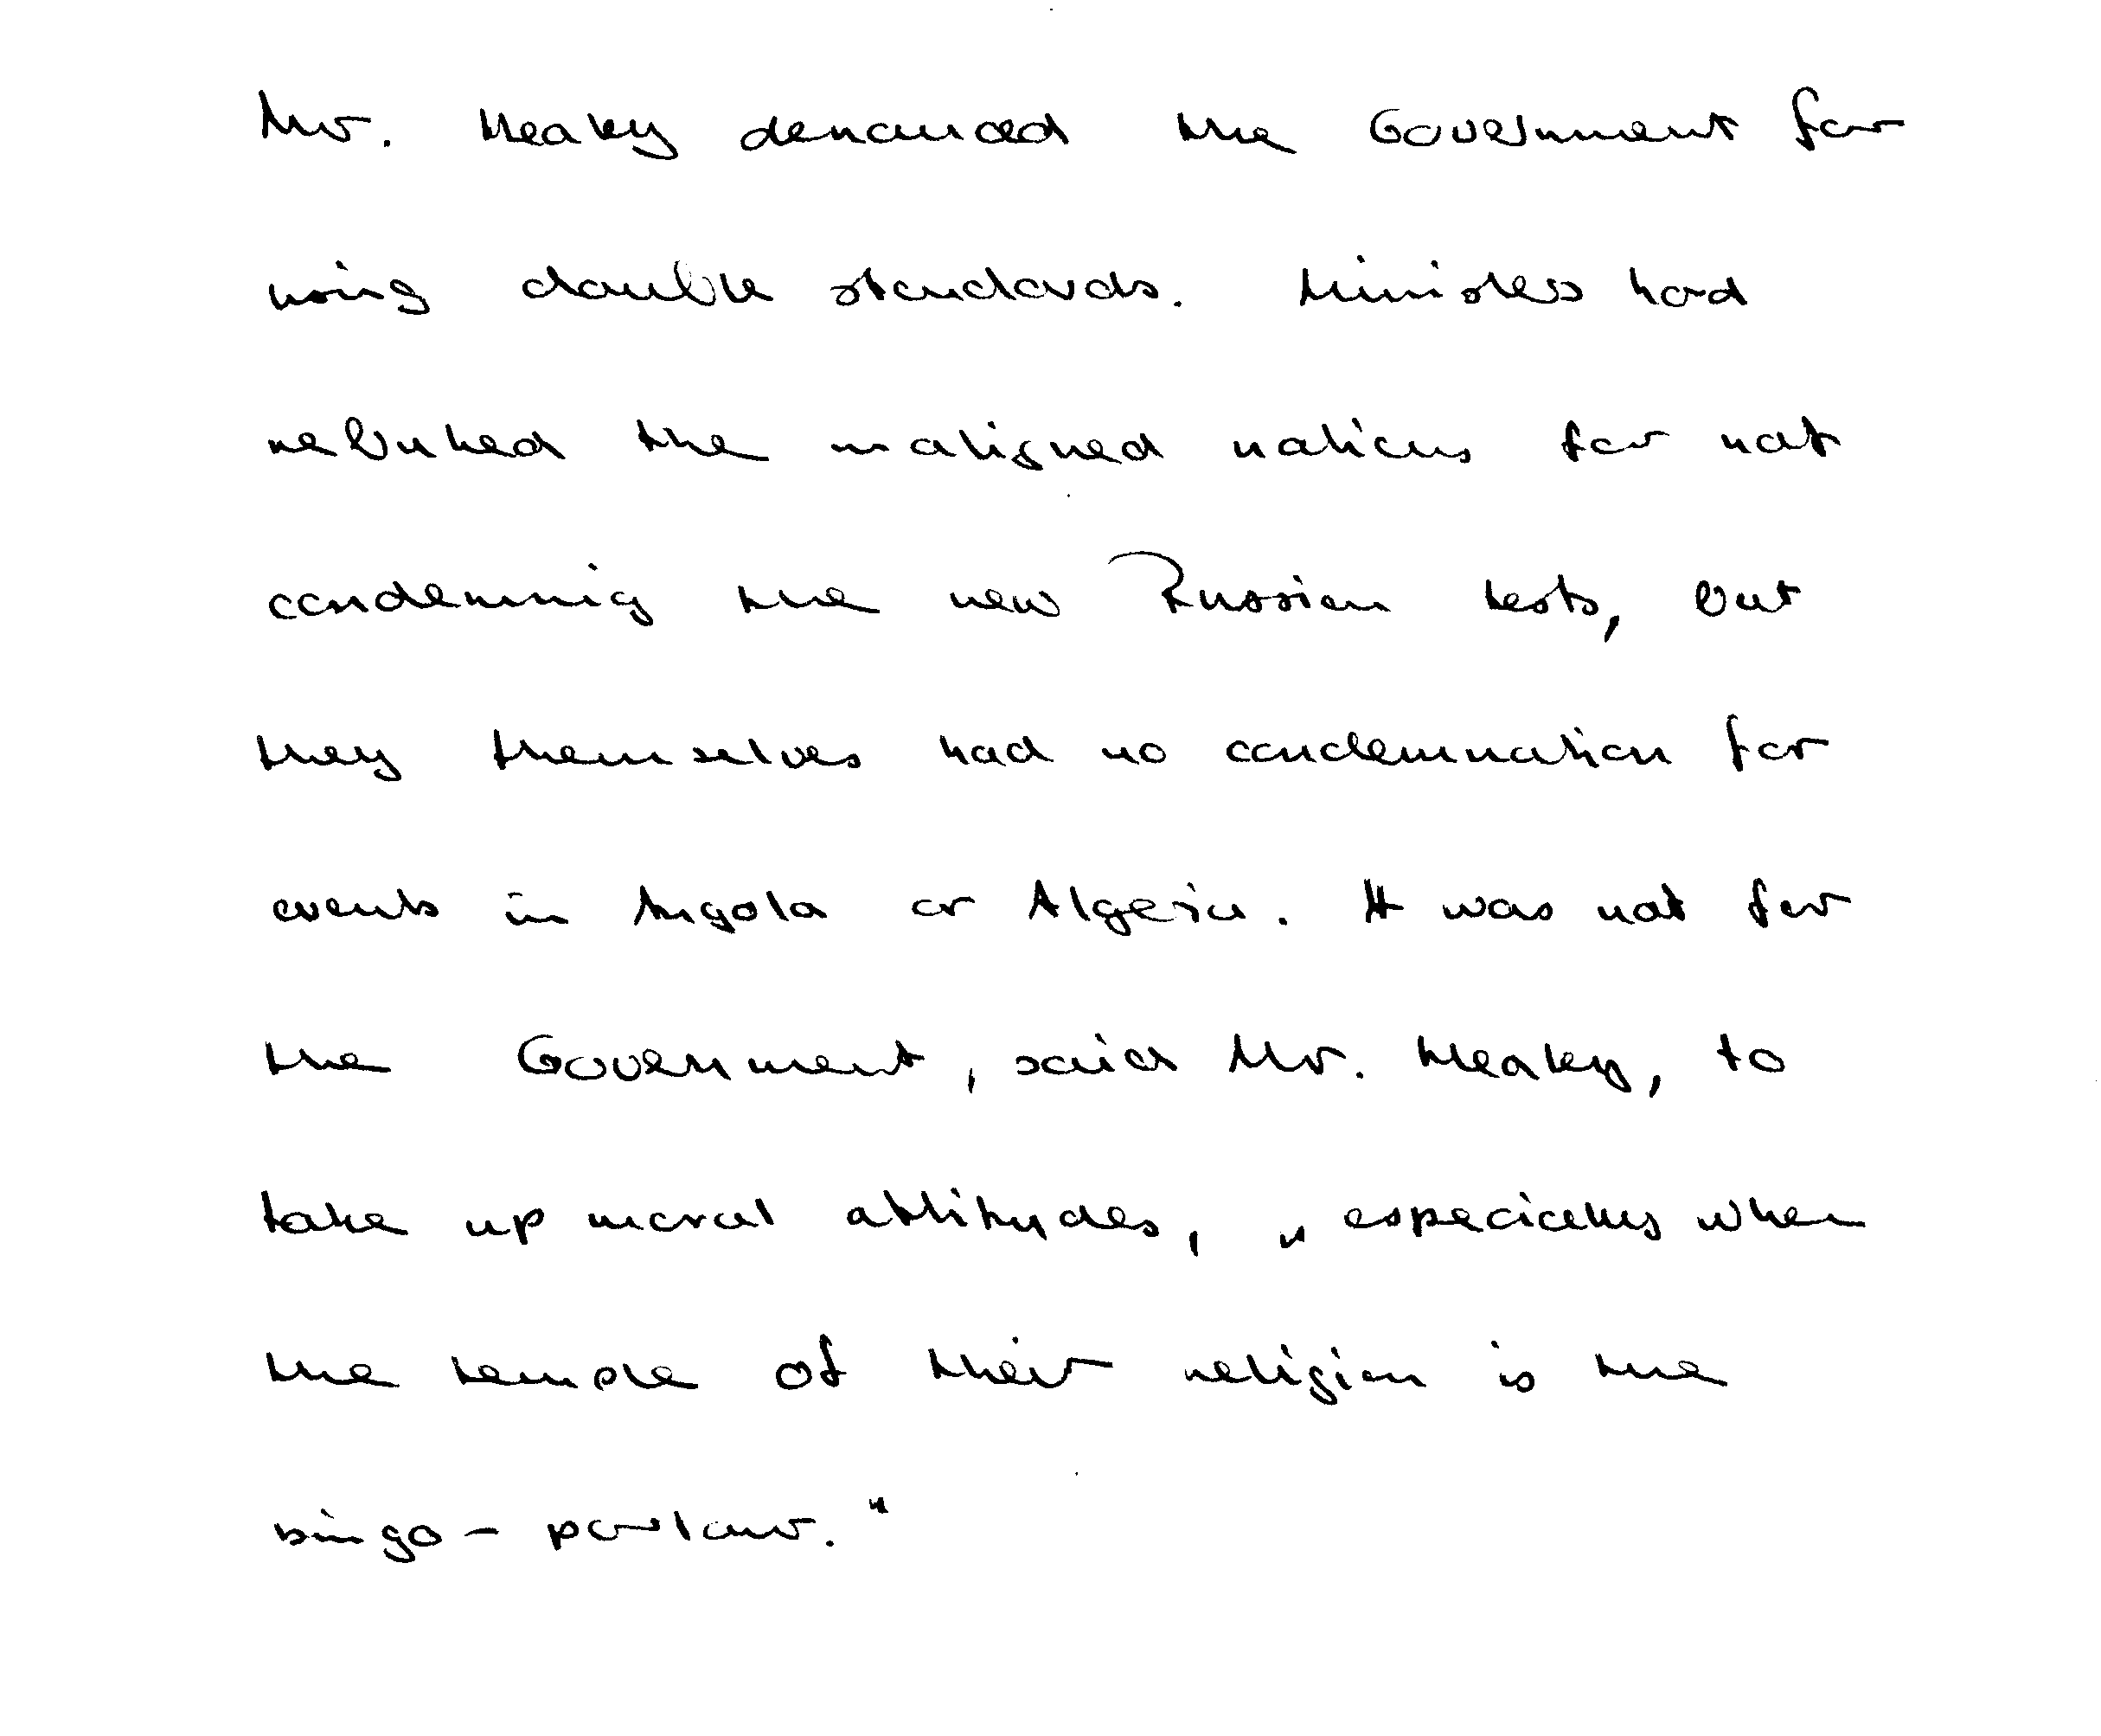 Mr. Healey denounced the Government for
using double standards. Ministers had
rebuked the maligned nations for not
condemning the new Russian tests, but
they themselves had no condemnation for
events in Angola or Algeria. It was not for
the Government, said Mr. Healey, to
take up moral attitudes, "especially when
the temple of their religion is the
bingo-parlour."